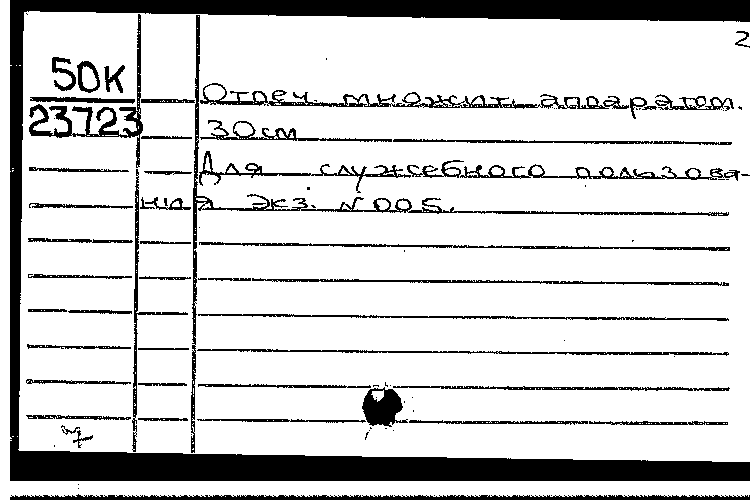 2
50К
23723
Отпеч. множит. аппаратом.
30см
Для служебного пользова-
ния Экз. №005.